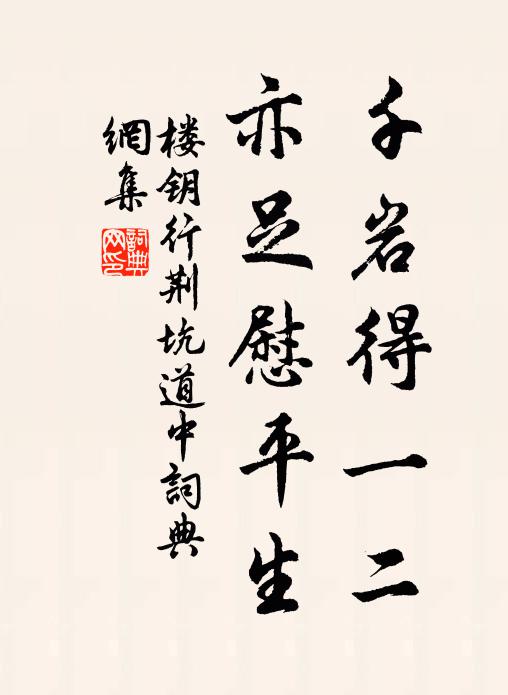 千岩得一二
亦足慰平生
楼钥行荆坑道中詞典
網集
詞典
网印